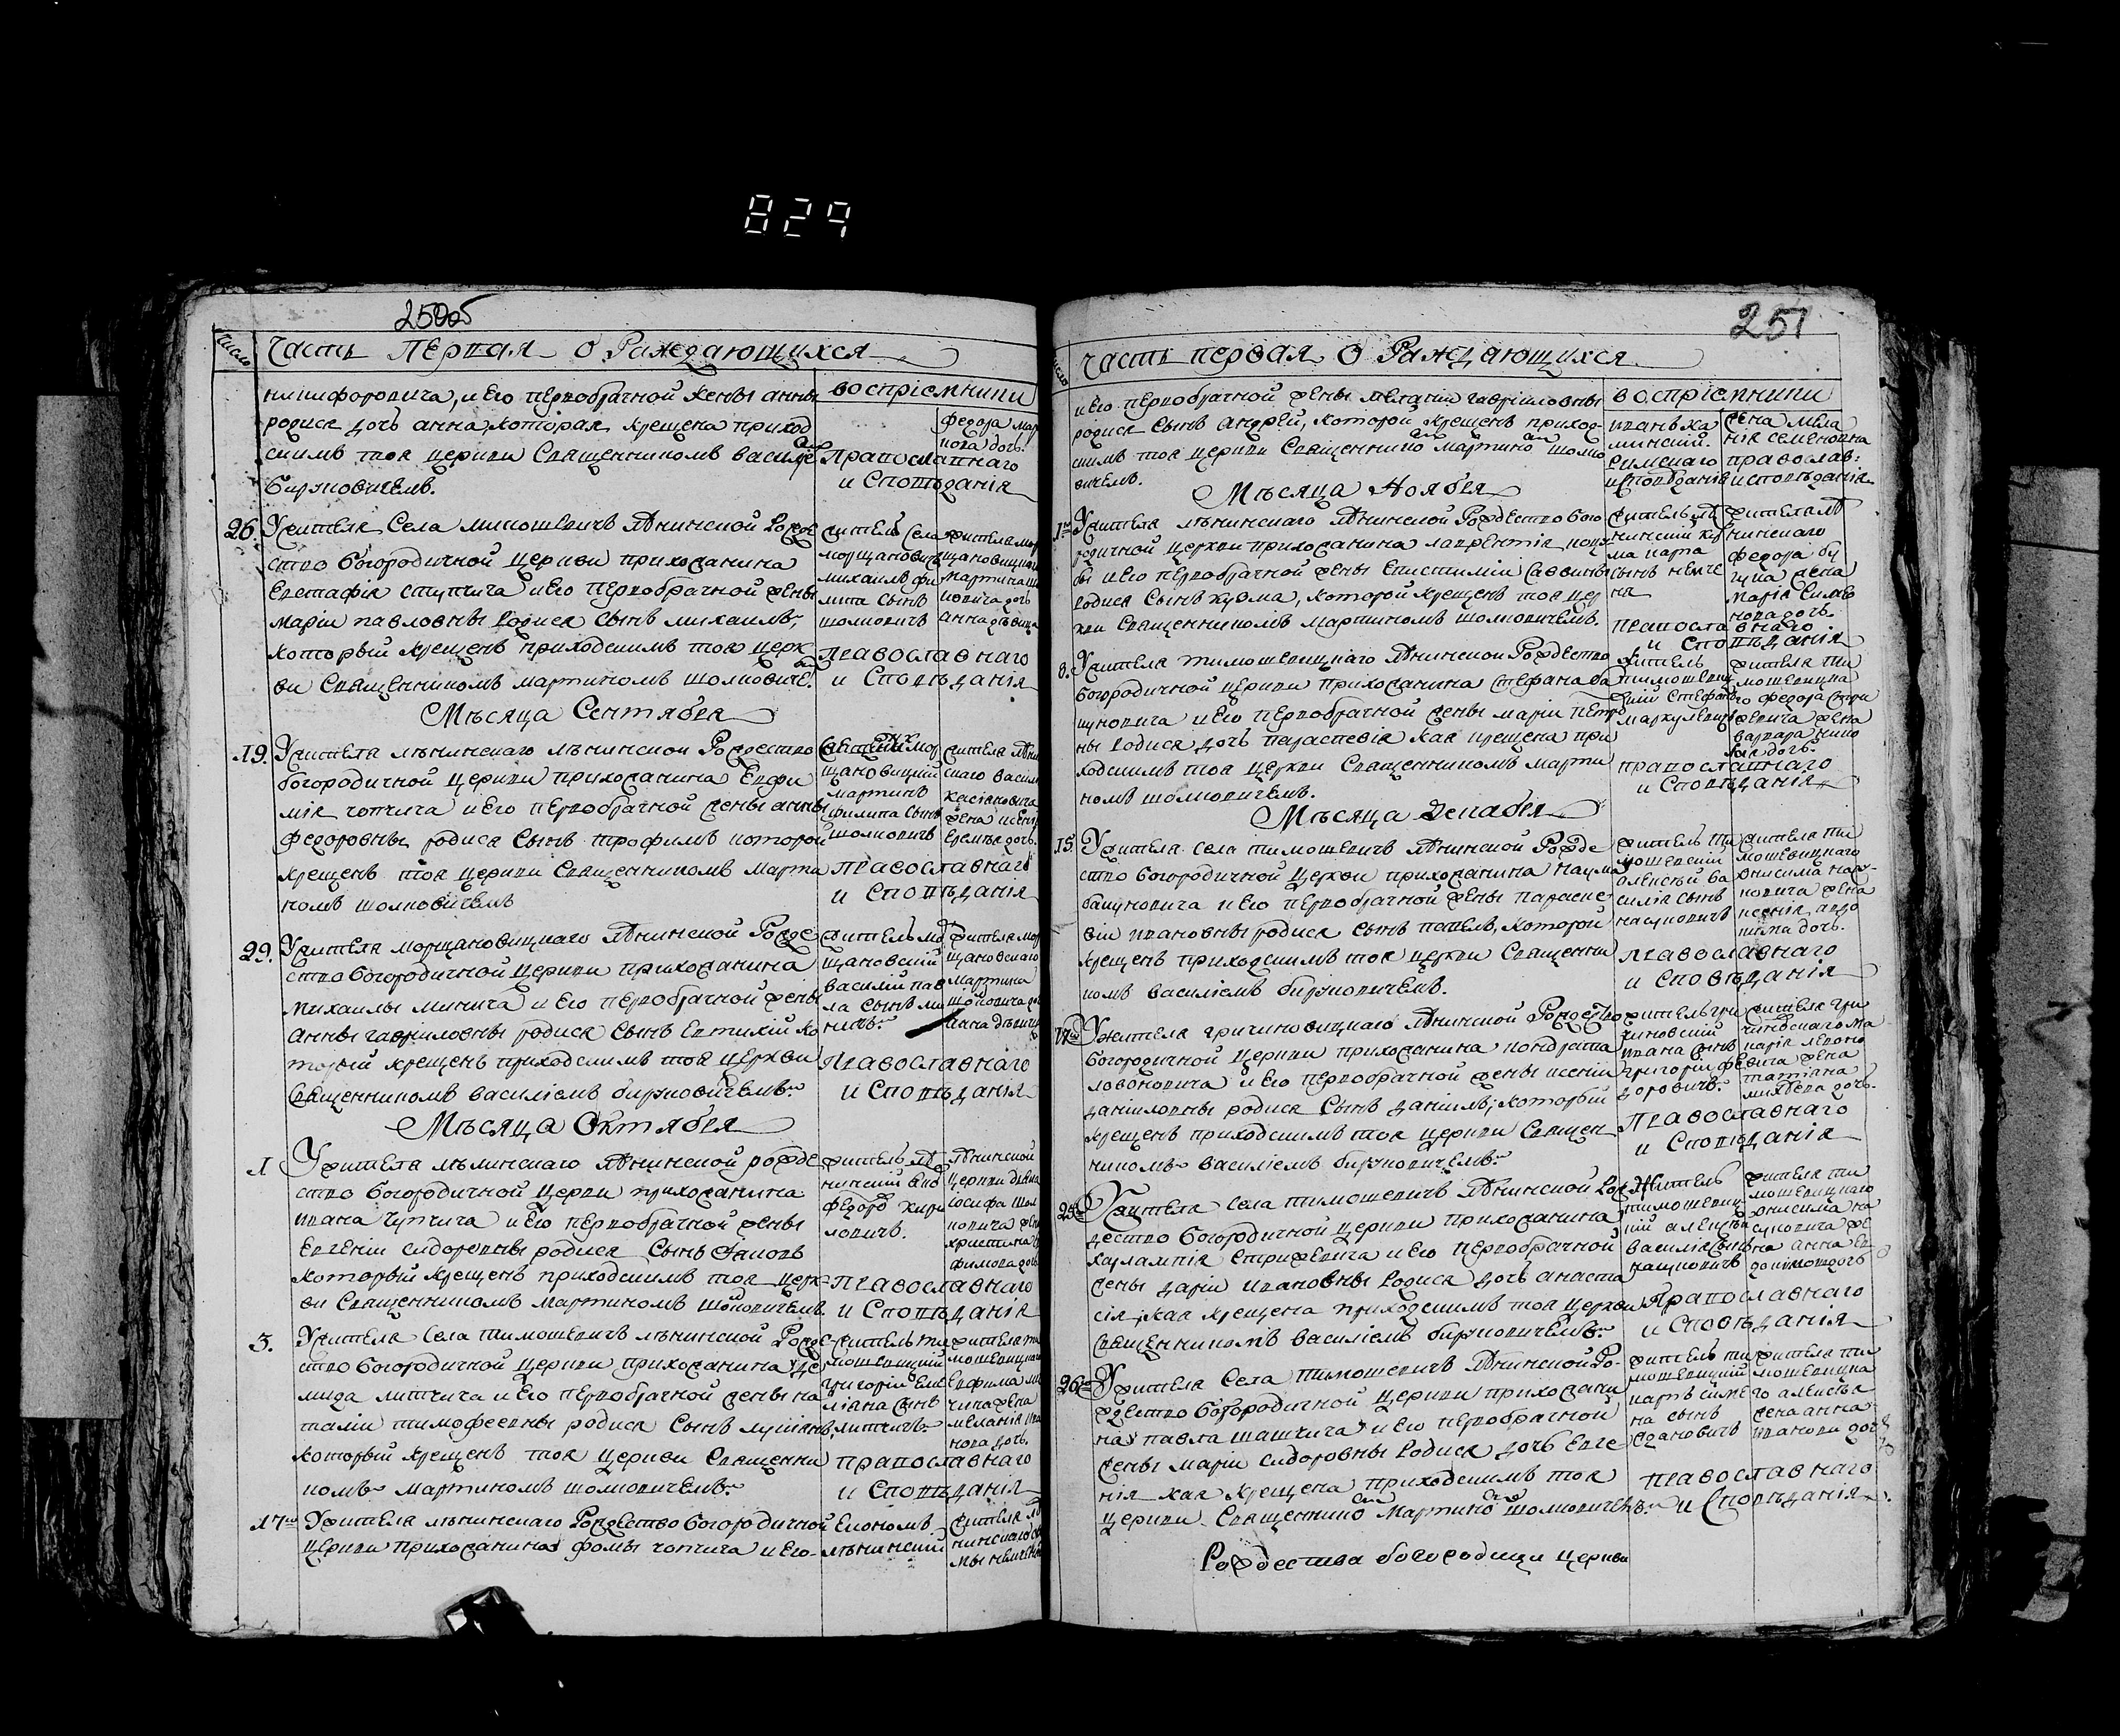 829
250об
Число
Часть Первая О Раждающихся
никифоровича, и Его первобрачной жены анны
родися дочь анна, которая крещена приход
скимъ тоя церкви Священникомъ василіе
бирновичемъ.
воспріемники
федора мар
нова дочь.
Православнаго
и Споведанія
26. Ужителя Села милошевичъ Лѣнинской Рожде
ство богородичной церкви прихожанина
Евстафія ступчича и Его первобрачной жены
маріи павловны родися сынъ михаилъ,
который крещенъ приходскимъ тоя церк
ви Священникомъ мартиномъ шолковиче.
житель Села
морщановичъ
михаилъ фи
липа сынъ
шолковичъ
жителя мор
щановицкаго
мартина шо
ковича дочь
анна дѣвица
православнаго
и Споведанія
Мѣсяца Сентября
19. Ужителя лѣнинскаго лѣнинской Рождество
богородичной церкви прихожанина Евфи
мія чопчича и Его первобрачной жены анны
федоровны родися сынъ трофимъ которой
крещенъ тоя церкви Священникомъ марти
номъ шолковичемъ
щановицкій
мартинъ
филипа сынъ
шолковичъ
жителя лѣни
скаго васил
касіяновича
жена ксенія
Еремѣя дочь.
православнаго
и Споведанія
29. Ужителя морщановицкаго Лѣнинской Рожде
ство богородичной церкви прихожанина
михаилы минича и Его первобрачной жены
анны гавріиловны родися сынъ Евтихій ко
торый крещенъ приходскимъ тоя церкви
Священникомъ василіемъ бирновичемъ.
житель мо
щановскій
василій пав
ла сынъ ми
ничъ.
жителя мор
щановскаго
мартина
шолковича до
анна дѣвица
Православнаго
и Споведанія
Мѣсяца Октября
1 Ужителя лѣлинскаго Лѣнинской рожде
ство богородичной церкви прихожанина
ивана чупчича и Его первобрачной жены
Евгеніи сидоровны родися сынъ Яковъ
который крещенъ приходскимъ тоя церк
ви Священникомъ мартиномъ шолковичемъ.
житель лѣ
нинскій
федоръ кири
ловичъ.
лѣнинской
церкви дьяка
іосифа шол
ковича жен
христина е
фимова дочь
православнаго
и Споведанія
3. Ужителя Села тимошевичъ лѣнинской Рожде
ство богородичной церкви прихожанина де
мида литвича и Его первобрачной жены на
таліи тимофеевны родися сынъ лукіянъ,
который крещенъ тоя церкви Священни
комъ мартиномъ шолковичемъ.
житель ти
мошевицкій
григорій Еме
ліяна сынъ
литвичъ.
жителя ти
мошевицкаго
Евфима ми
чича жена
меланія ива
нова дочь.
православнаго
и Споведанія
17го Ужителя лѣнинскаго Рождество богородичной
церкви прихожанина фомы чопчича и Его
Економъ
лѣнинскій
жителя лѣ
нинскаго
251
Часть первая О Раждающихся
и Его первобрачной жены пелагіи гавріиловны
родися сынъ андрей, которой крещенъ приход
скимъ тоя церкви Священнико мартино шолко
вичемъ.
воспріемники
иванъ ка
минскій.
римскаго
исповѣданія
жена мела
нія семеновна
православ:
исповѣданія
Мѣсяца Ноября
1го Ужителя лѣнинскаго Лѣнинской Рождество бого
родичной церкви прихожанина лаврентія
и Его первобрачной жены Епистиміи саввины
родися сынъ кузма, которой крещенъ тоя цер
кви Священникомъ мартиномъ шолковичемъ.
житель лѣ
нинскій куз
ма карпа
сынъ немче
на
жителя лѣ
нинскаго
федора бу
гука жена
марія Симо
нова дочь.
православнаго
и Споведанія
8. Ужителя тимошевицкаго Лѣнинской Рождество
богородичной церкви прихожанина стефана ба
цуновича и Его первобрачной жены маріи петро
ны родися дочь параскевія кая крещена при
ходскимъ тоя церкви Священникомъ марти
номъ шолковичемъ.
житель
тимошевиц
кій стефанъ
маркулевичъ
жителя ти
мошевицка
го федора стри
жевича жена
варвара нико
лая дочь.
православнаго
и Споведанія
Мѣсяца Декабря
15. Ужителя села тимошевичъ Лѣнинской Рожде
ство богородичной церкви прихожанина наума
бацуновича и Его первобрачной жены параске
віи ивановны родися сынъ павелъ, которой
крещенъ приходскимъ тоя церкви Священни
комъ василіемъ бирновичемъ.
житель ти
мошевскій
алексѣй ва
силія сынъ
нацуновичъ
жителя ти
мошевицкаго
Онисима нац
новича жена
ксенія авдо
кима дочь.
православнаго
и Споведанія
17го Ужителя гричиновицкаго Лѣнинской Рождество
богородичной церкви прихожанина кондрата
ловоновича и Его первобрачной жены ксеніи
даніиловны родися сынъ даніилъ, который
крещенъ приходскимъ тоя церкви Священ
никомъ василіемъ бирновичемъ.
житель гри
чиновскій
ивана сынъ
григорій фе
доровичъ.
жителя гри
чиновскаго ма
карія левоно
вича жена
татіана
михѣева дочь.
Православнаго
и Споведанія
25го Ужителя села тимошевичъ Лѣнинской Рож
дество богородичной церкви прихожанина
харлампія стрижевича и Его первобрачной
жены даріи ивановны родися дочь анаста
сія, кая крещена приходскимъ тоя церкви
Священникомъ василіемъ бирновичемъ.
Житель
тимошевиц
кій алексѣй
василія сынъ
нацуновичъ
жителя ти
мошевицкаго
Онисима на
цуновича же
на анна ев
докимова дочь
Православнаго
и Споведанія
26го Ужителя Села тимошевичъ Лѣнинской Ро
ждество богородичной церкви прихожани
на павла шашчича и Его первобрачной
жены маріи сидоровны родися дочь Евге
нія кая крещена приходскимъ тоя
церкви Священнико Мартино шолковичемъ.
житель ти
мошевицкій
карпъ симо
на сынъ
ждановичъ
жителя ти
мошевицка
го алексѣя
жена анна
иванова дочь
православнаго
и Споведанія.
Рождества богородицы церкви